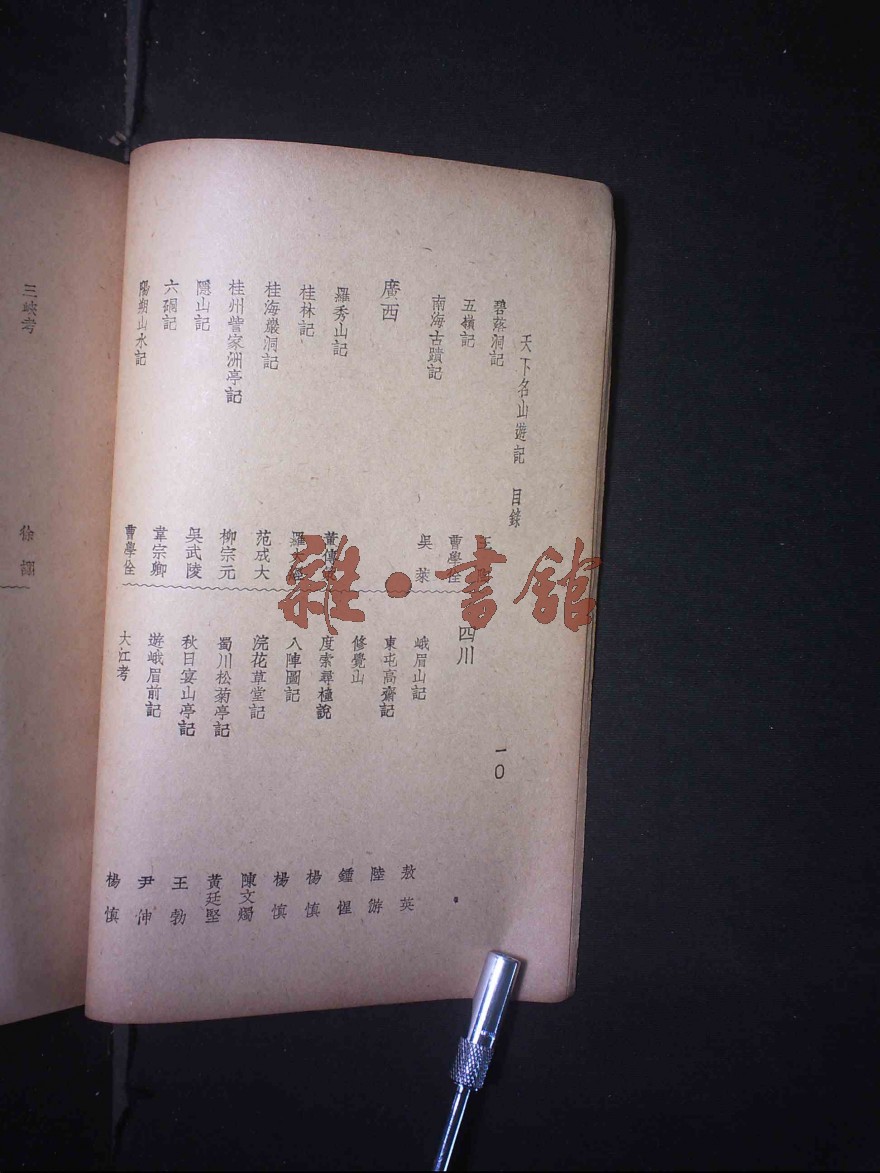 天下名山遊記 目錄 一〇
碧落洞記 王
五嶺記 曹學佺
南海古蹟記 吳萊
廣西
羅秀山記 黃傳
桂林記 羅
桂海巖洞記 范成大
桂州訾家洲亭記 柳宗元
隱山記 吳武陵
六硐記 韋宗卿
陽朔山水記 曹學佺
四川
峨眉山記 敖英
東屯高齋記 陸游
修覺山 鍾惺
度索尋橦說 楊慎
八陣圖記 楊慎
浣花草堂記 陳文燭
蜀川松菊亭記 黃廷堅
秋日宴山亭記 王勃
遊峨眉前記 尹伸
大江考 楊慎
三峽考 徐
雜·書館